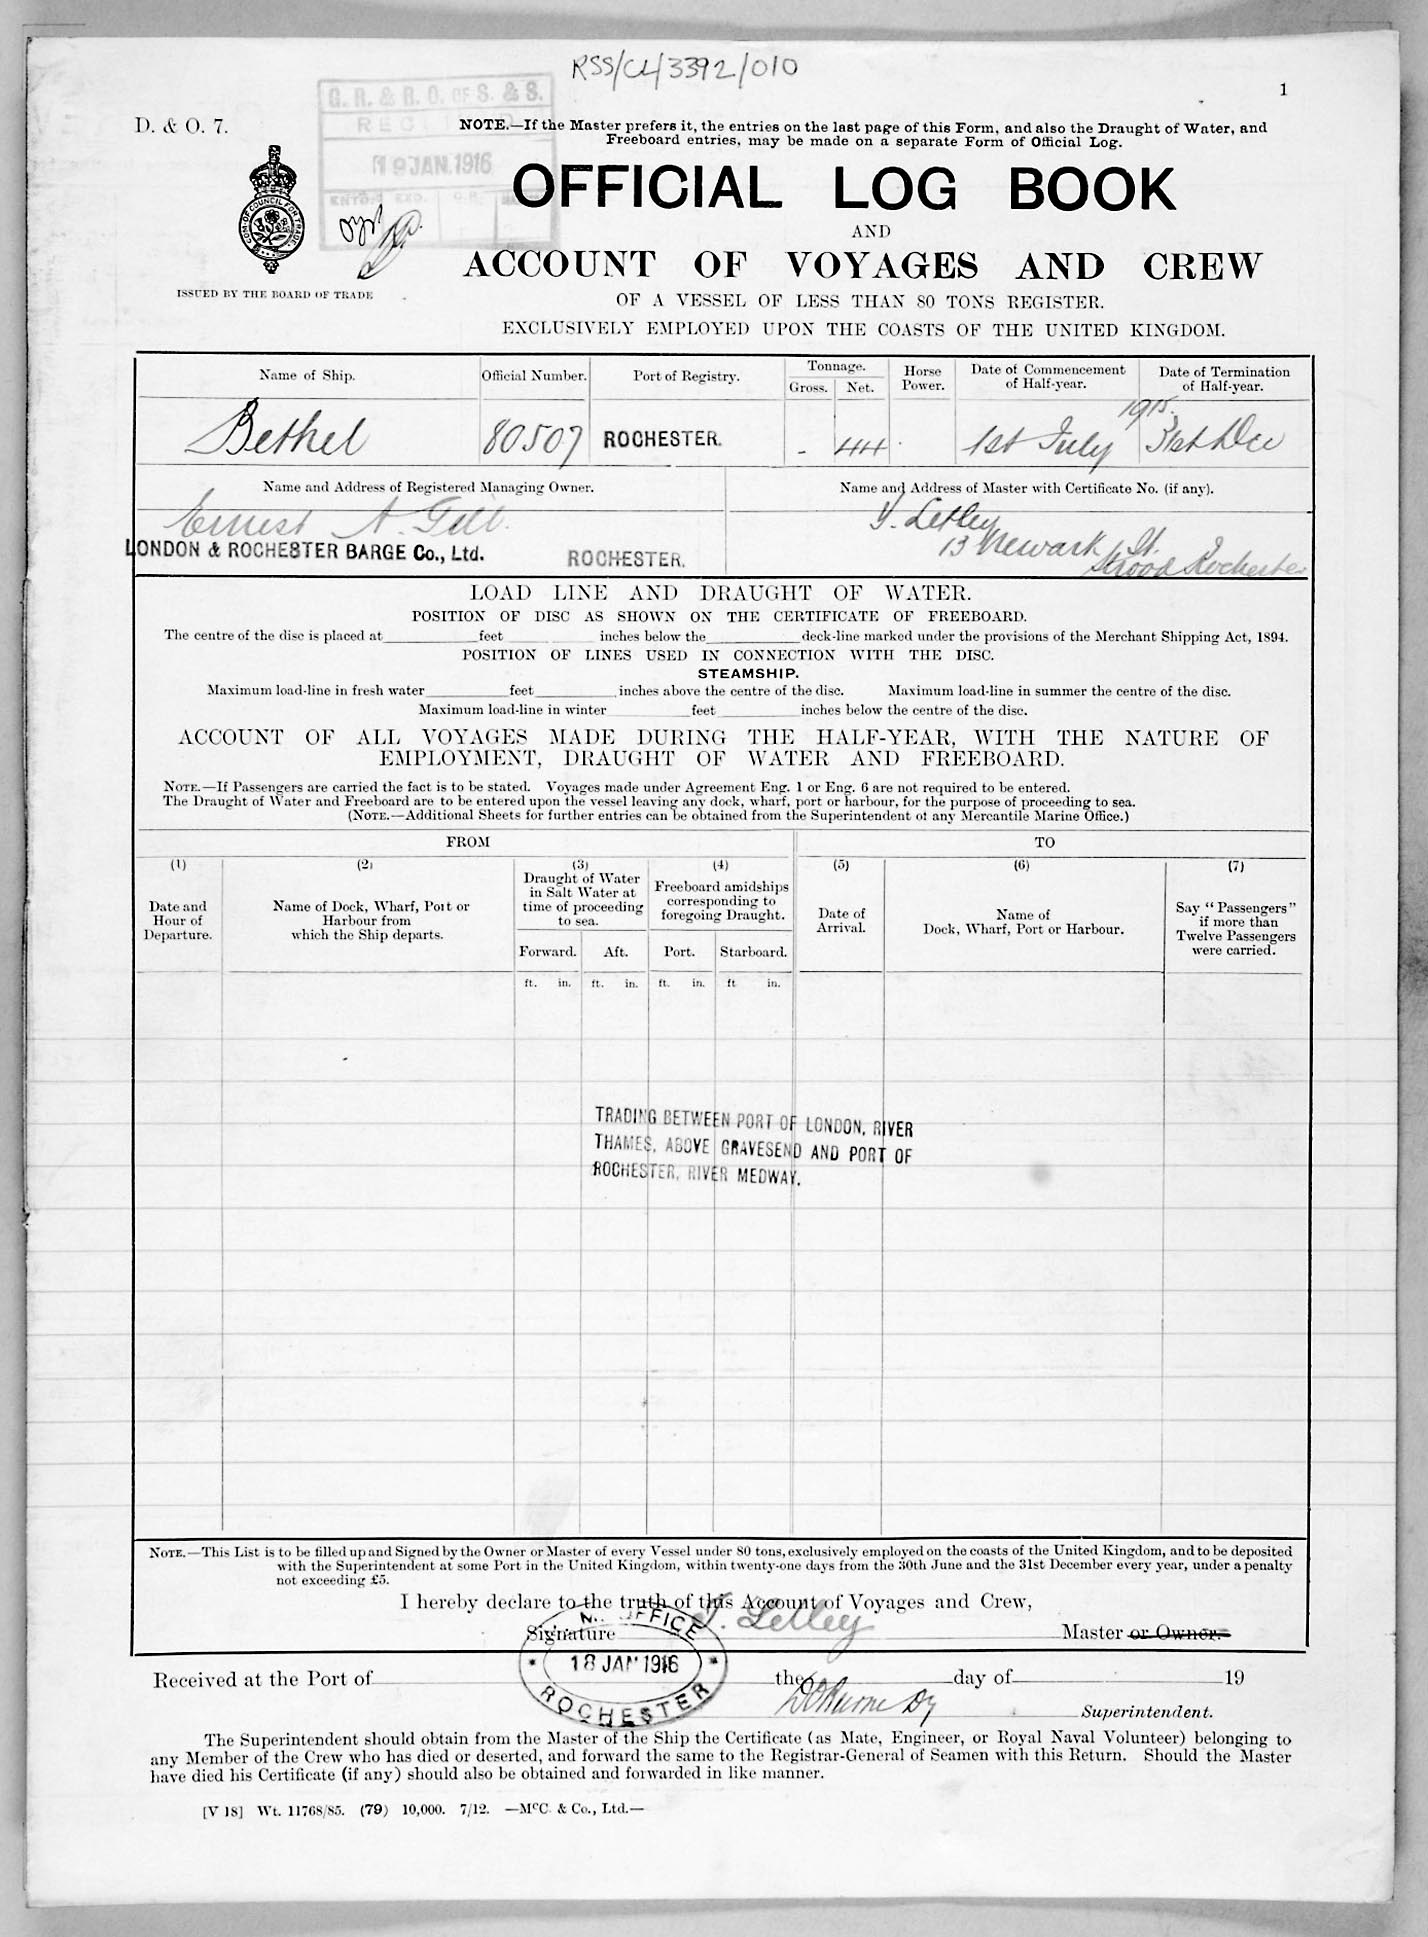 RSS/CL/3392/010
1
D. & O. 7.
G. R. & R. O. OF S. & S.
19 JAN. 1916
COM. OF COUNCIL FOR TRADE
ISSUED BY THE BOARD OF TRADE
NOTE.—If the Master prefers it, the entries on the last page of this Form, and also the Draught of Water, and
Freeboard entries, may be made on a separate Form of Official Log.
OFFICIAL LOG BOOK
AND
ACCOUNT OF VOYAGES AND CREW
OF A VESSEL OF LESS THAN 80 TONS REGISTER.
EXCLUSIVELY EMPLOYED UPON THE COASTS OF THE UNITED KINGDOM.
Name of Ship.
Official Number.
Port of Registry.
Tonnage.
Gross.
Net.
Horse
Power.
Date of Commencement
of Half-year.
Date of Termination
of Half-year.
Bethel
80507
ROCHESTER.
-
44
1st July
1915.
31st Dec
Name and Address of Registered Managing Owner.
Name and Address of Master with Certificate No. (if any).
Ernest A. Gill.
LONDON & ROCHESTER BARGE Co., Ltd.
ROCHESTER.
Letley
13 Newark St.
Strood Rochester
LOAD LINE AND DRAUGHT OF WATER.
POSITION OF DISC AS SHOWN ON THE CERTIFICATE OF FREEBOARD.
The centre of the disc is placed at feet inches below the deck-line marked under the provisions of the Merchant Shipping Act, 1894.
POSITION OF LINES USED IN CONNECTION WITH THE DISC.
STEAMSHIP.
Maximum load-line in fresh water feet inches above the centre of the disc. Maximum load-line in summer the centre of the disc.
Maximum load-line in winter feet inches below the centre of the disc.
ACCOUNT OF ALL VOYAGES MADE DURING THE HALF-YEAR, WITH THE NATURE OF
EMPLOYMENT, DRAUGHT OF WATER AND FREEBOARD.
NOTE.—If Passengers are carried the fact is to be stated. Voyages made under Agreement Eng. 1 or Eng. 6 are not required to be entered.
The Draught of Water and Freeboard are to be entered upon the vessel leaving any dock, wharf, port or harbour, for the purpose of proceeding to sea.
(NOTE.—Additional Sheets for further entries can be obtained from the Superintendent of any Mercantile Marine Office.)
FROM
TO
(1)
Date and
Hour of
Departure.
(2)
Name of Dock, Wharf, Port or
Harbour from
which the Ship departs.
(3)
Draught of Water
in Salt Water at
time of proceeding
to sea.
Forward.
Aft.
(4)
Freeboard amidships
corresponding to
foregoing Draught.
Port.
Starboard.
(5)
Date of
Arrival.
(6)
Name of
Dock, Wharf, Port or Harbour.
(7)
Say "Passengers"
if more than
Twelve Passengers
were carried.
ft. in. ft. in. ft. in. ft in.
TRADING BETWEEN PORT OF LONDON, RIVER
THAMES, ABOVE GRAVESEND AND PORT OF
ROCHESTER, RIVER MEDWAY.
NOTE.—This List is to be filled up and Signed by the Owner or Master of every Vessel under 80 tons, exclusively employed on the coasts of the United Kingdom, and to be deposited
with the Superintendent at some Port in the United Kingdom, within twenty-one days from the 30th June and the 31st December every year, under a penalty
not exceeding £5.
I hereby declare to the truth of this Account of Voyages and Crew,
Signature Letley Master or Owner.
OFFICE
18 JAN 1916
ROCHESTER
Received at the Port of the day of 19
Superintendent.
The Superintendent should obtain from the Master of the Ship the Certificate (as Mate, Engineer, or Royal Naval Volunteer) belonging to
any Member of the Crew who has died or deserted, and forward the same to the Registrar-General of Seamen with this Return. Should the Master
have died his Certificate (if any) should also be obtained and forwarded in like manner.
[V 18] Wt. 11768/85. (79) 10,000. 7/12. —McC. & Co., Ltd.—